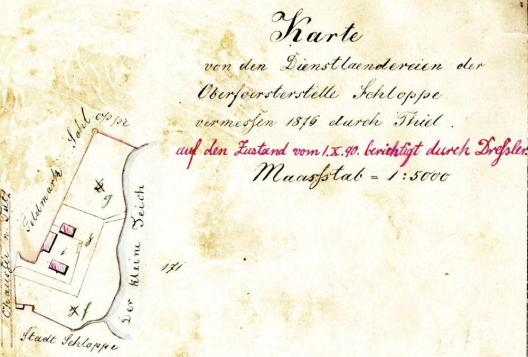 Karte
von den Dienstlaendereien der
Oberfoersterstelle Schloppe
vermessen 1876 durch Thiel.
auf den Zustand vom 1.X.90. berichtigt durch Dressler
Maassstab = 1:5000
Feldmark Schloppe
g
Chaussee n. Tütz
Der kleine Teich
f
Stadt Schloppe